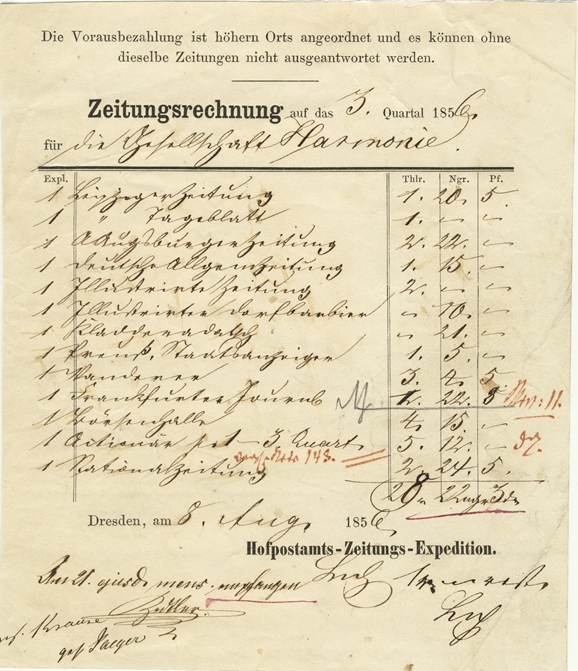 Die Vorausbezahlung ist höhern Orts angeordnet und es können ohne
dieselbe Zeitungen nicht ausgeantwortet werden.
Zeitungsrechnung auf das 3. Quartal 1856.
für die Gesellschaft Harmonie.
Expl. Thlr. Ngr. Pf.
1 Leipziger Zeitung 1. 20. 5.
1 " Tageblatt 1. – –
1 A Augsburger Zeitung 2. 22. –
1 Deutsche Allgem Zeitung 1. 15. –
1 Illustrirte Zeitung 2. – –
1 Illustrirter Dorfbarbier – 10. –
1 Kladderadatsch – 21. –
1 Preuß. Staatsanzeiger 1. 5. –
1 Wanderer 3. 4. 5
1 Frankfurter Journ 22. 11.
1 Börsenhalle 4. 15. –
1 Actionär 3. Quart 5. 12. –
143.
1 Nationalzeitung 2. 24. 5.
28 22
Dresden, am 8. Aug 1856
Hofpostamts-Zeitungs-Expedition.
Am 21. ejusd. mens. empfangen
Krause
Jaeger